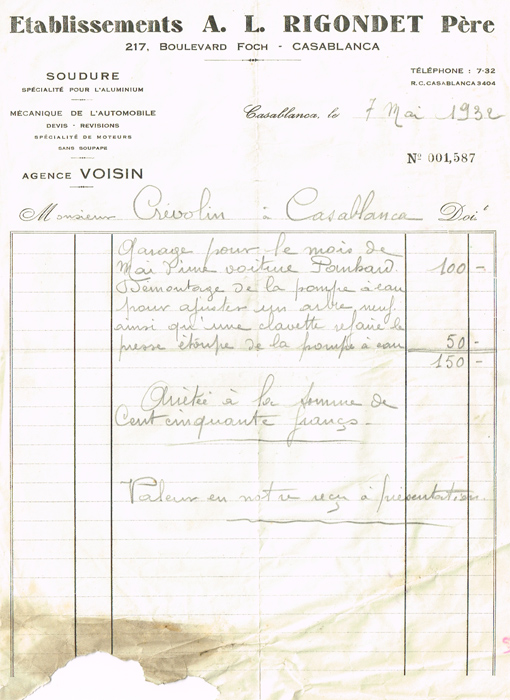 Etablissements A. L. RIGONDET Père
217, BOULEVARD FOCH - CASABLANCA
SOUDURE
SPÉCIALITÉ POUR L'ALUMINIUM
MÉCANIQUE DE L'AUTOMOBILE
DEVIS - REVISIONS
SPÉCIALITÉ DE MOTEURS
SANS SOUPAPE
AGENCE VOISIN
TÉLÉPHONE : 7-32
R. C. CASABLANCA 3404
Casablanca, le 7 Mai 1932
Nº 001,587
Monsieur Crévolin à Casablanca Doit
Garage pour le mois de
Mai d'une voiture Panhard. 100 -
Démontage de la pompe à eau
pour ajuster un arbre neuf.
ainsi qu'une clavette refaire le
presse étoupe de la pompe à eau 50 -
150 -
Arrêtée à la somme de
Cent cinquante francs.
Valeur en notre reçu à présentation.